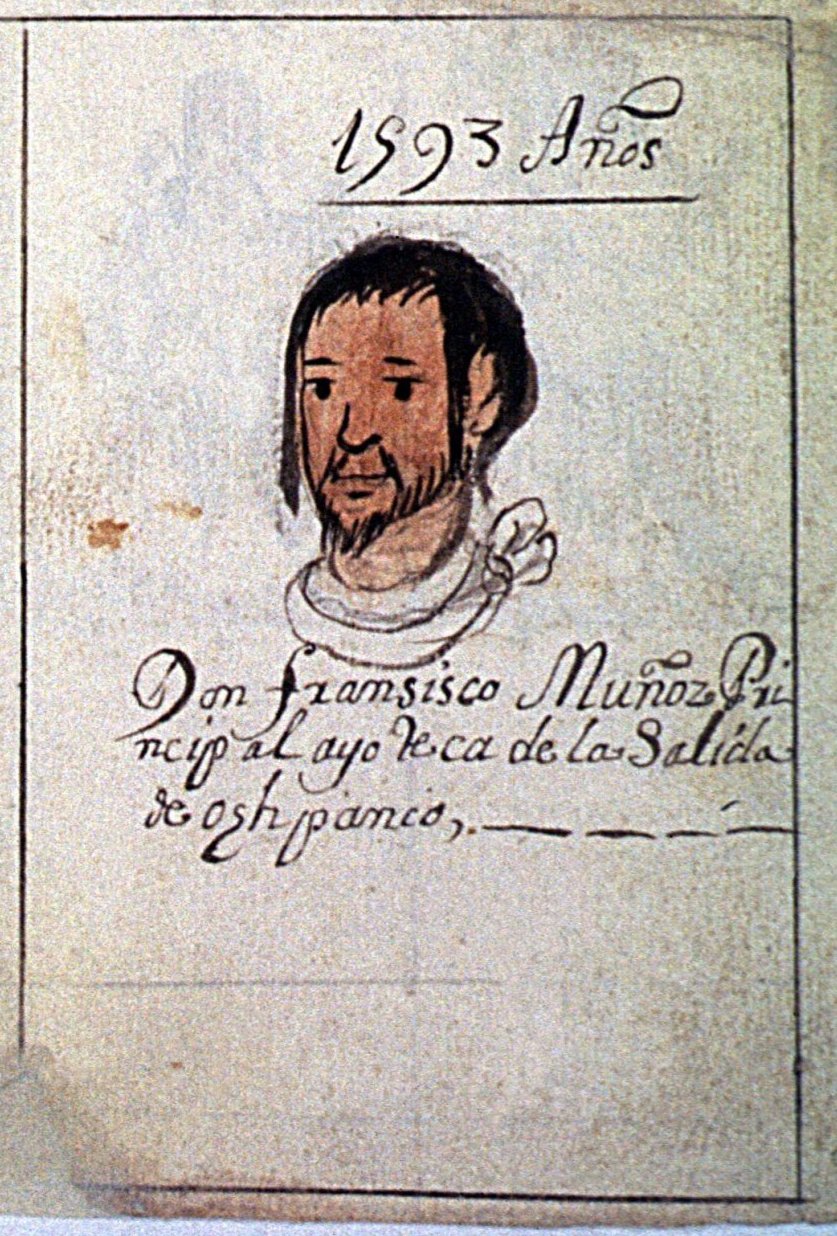 1593 Años
Don fransisco Muñoz Pri
ncipal ayoteca de la Salida
de oshpanco,